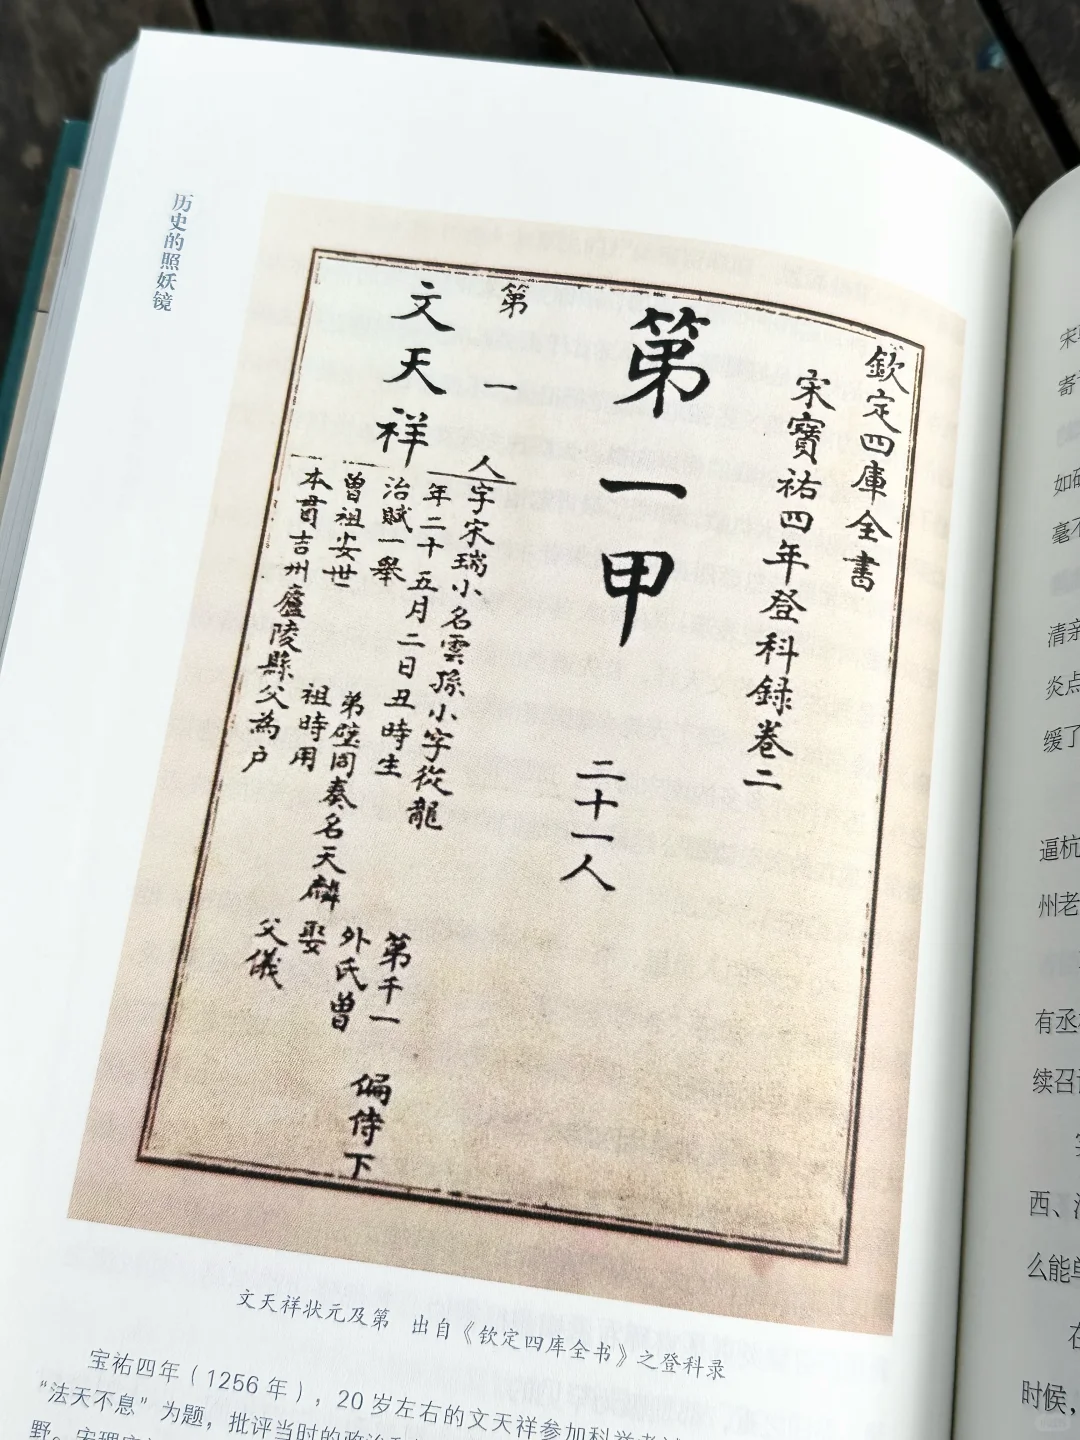 历史的照妖镜
欽定四庫全書
宋寶祐四年登科録卷二
第一甲 二十一人
第一人
文天祥
字宋瑞小名雲孫小字從龍
年二十五月二日丑時生
治賦一舉 第千一 偏侍下
曾祖安世 弟璧同奏名天麟 外氏曾
祖時用 娶
本貫吉州廬陵縣父為户
父儀
文天祥状元及第 出自《钦定四库全书》之登科录
宝祐四年（1256年），20岁左右的文天祥参加科举考试
“法天不息”为题，批评当时的政治
野。宋理宗
寄
毫不
清亲
炎点
缓了
逼杭
州老
有丞
续召
西、
么能单
在
时候，